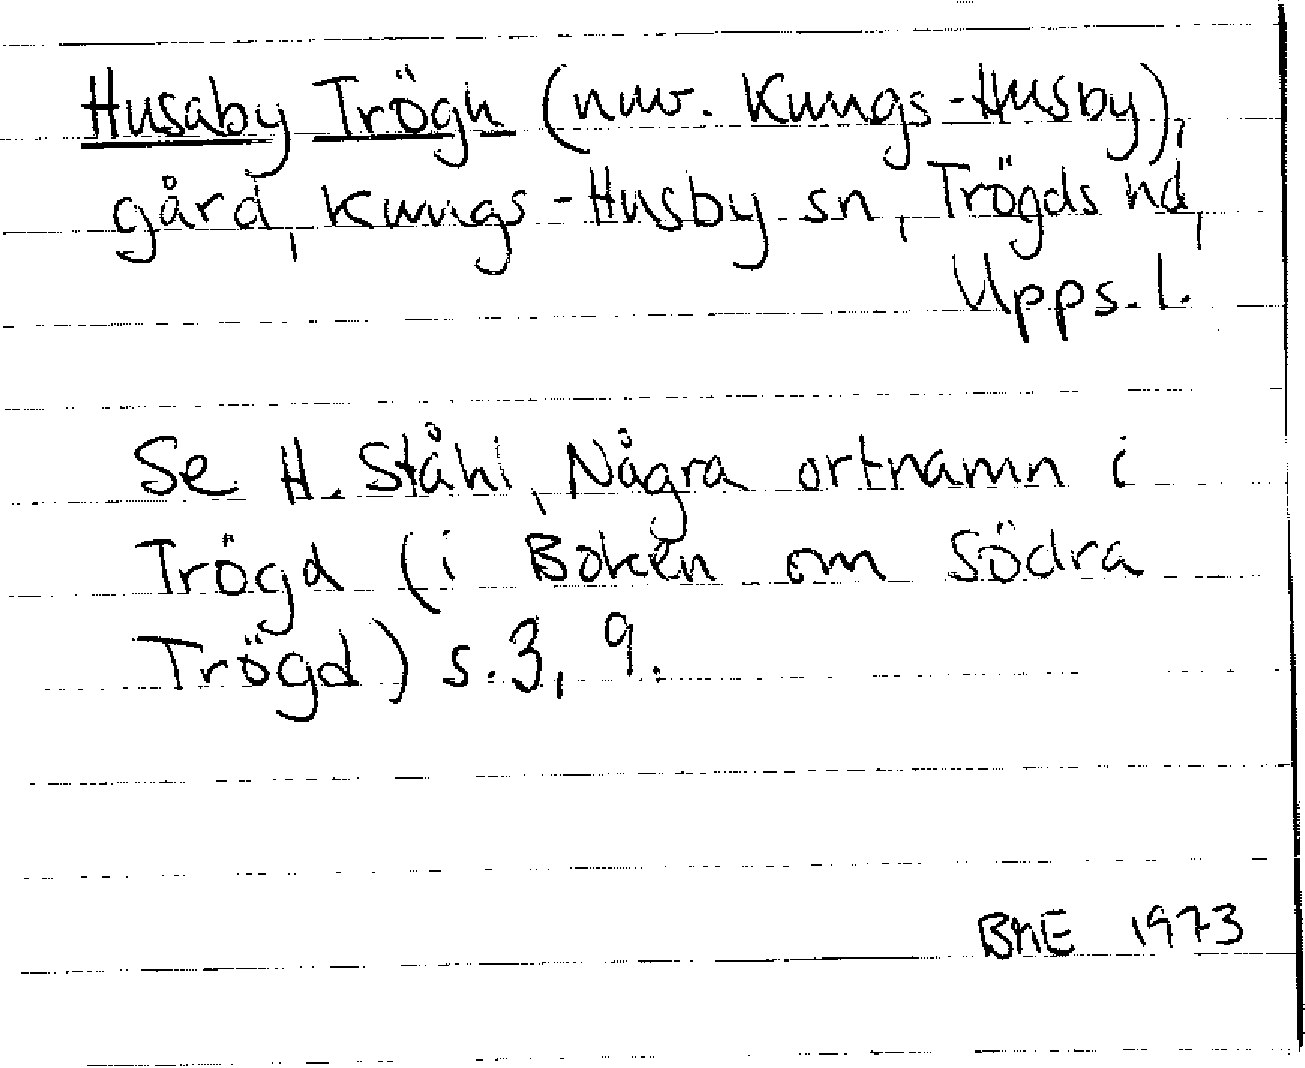 Husaby Trögh (nuv. Kungs-Husby),
gård, Kungs-Husby sn, Trögds hd,
Upps. l.
Se H. Ståhl, Några ortnamn i
Trögd (i Boken om Södra
Trögd) s. 3, 9.
1973